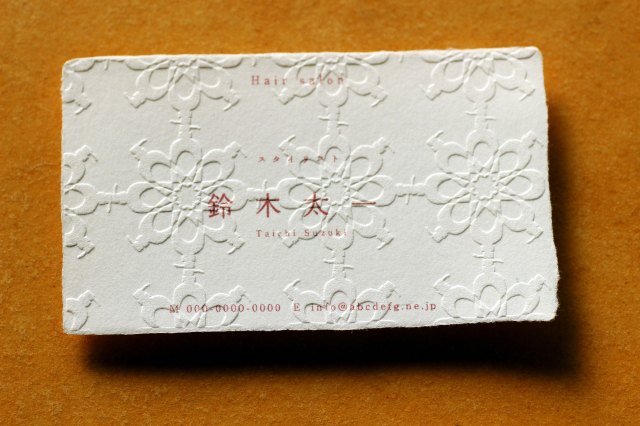 Hair salon
スタイリスト
鈴木太一
Taichi Suzuki
M 000-0000-0000 E info@abcdefg.ne.jp